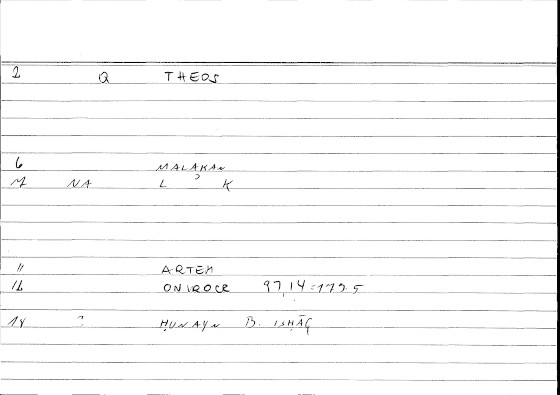 2 Q THEOS
6 MALAKAN
NA L ʾ K
11 ARTEM
12 ONIROCR 97,14 = 179.5
14 ? ḤUNAYN B. ISḤĀQ